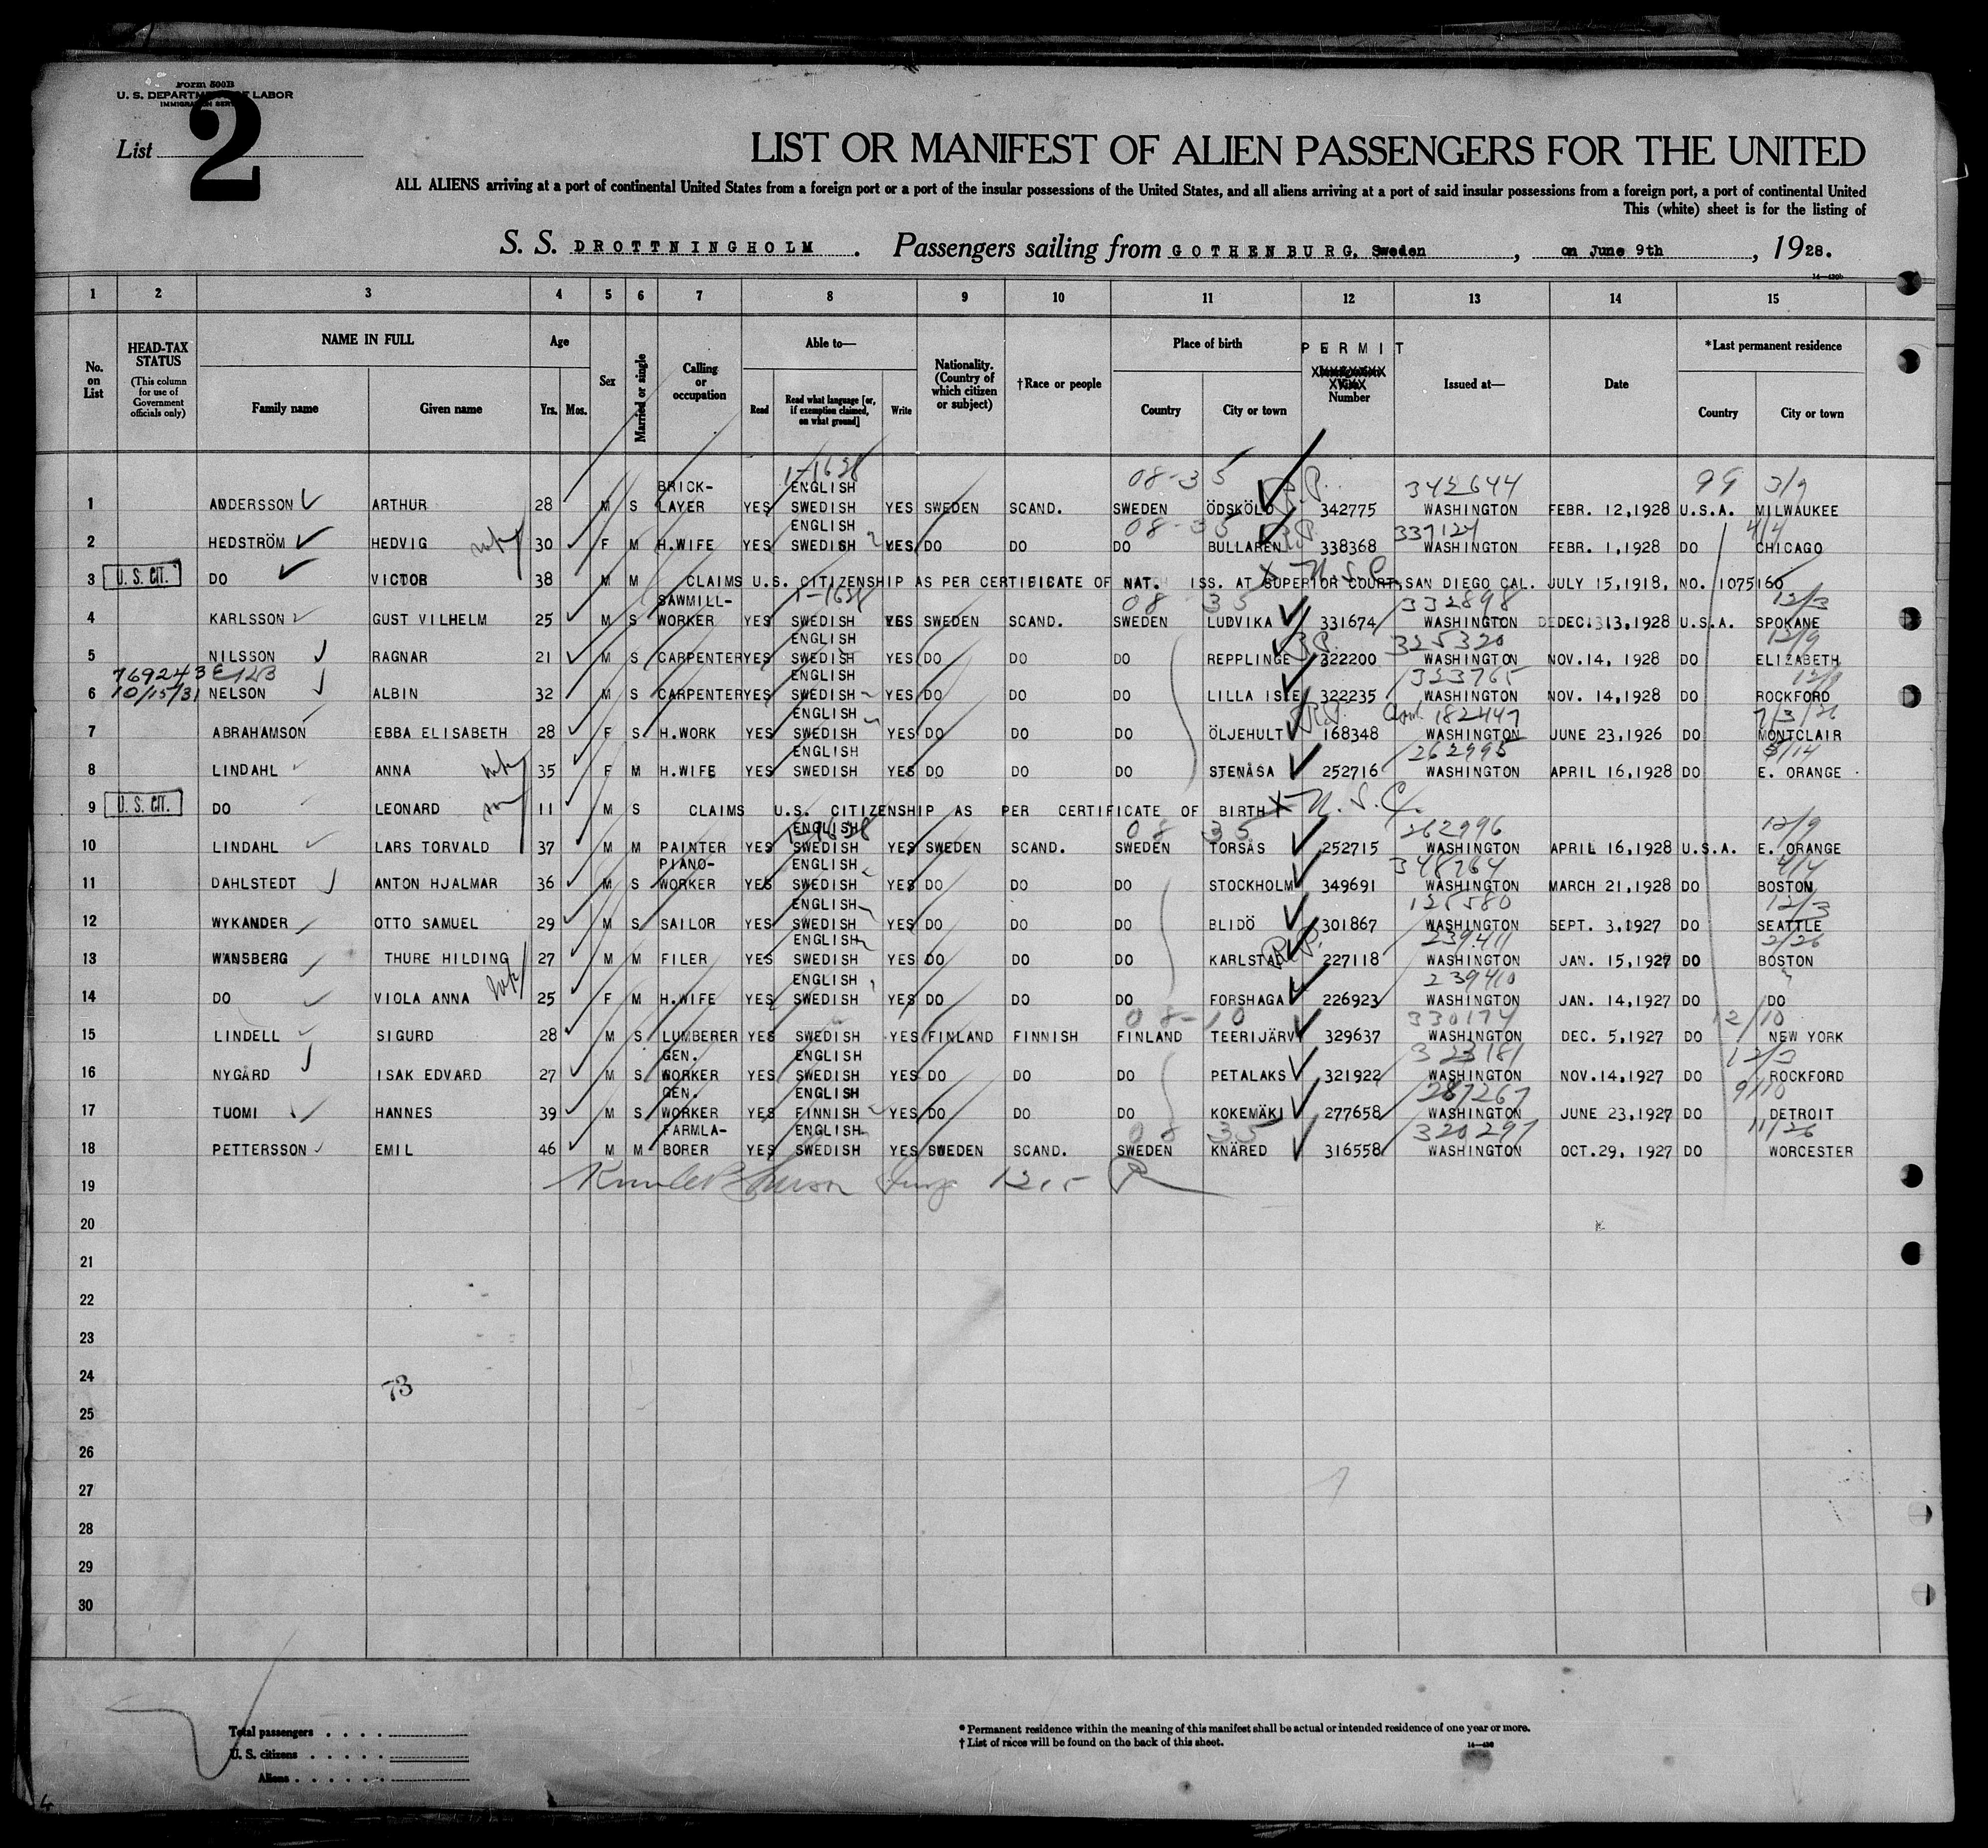 Form 500B
U. S. DEPARTMENT OF LABOR
IMMIGRATION SERVICE
List 2
LIST OR MANIFEST OF ALIEN PASSENGERS FOR THE UNITED
ALL ALIENS arriving at a port of continental United States from a foreign port or a port of the insular possessions of the United States, and all aliens arriving at a port of said insular possessions from a foreign port, a port of continental United
This (white) sheet is for the listing of
S. S. DROTTNINGHOLM. Passengers sailing from GOTHENBURG, Sweden, on June 9th, 1928.
1 2 3 4 5 6 7 8 9 10 11 12 13 14 15
No. on List
HEAD-TAX STATUS (This column for use of Government officials only)
NAME IN FULL Family name Given name
Age Yrs. Mos.
Sex
Married or single
Calling or occupation
Able to— Read Read what language [or, if exemption claimed, on what ground] Write
Nationality. (Country of which citizen or subject)
†Race or people
Place of birth Country City or town
PERMIT Number
Issued at—
Date
*Last permanent residence Country City or town
1-1628 08-35 R.P. 342644 99 3/9
1 ANDERSSON ARTHUR 28 M S BRICK-LAYER YES ENGLISH SWEDISH YES SWEDEN SCAND. SWEDEN ÖDSKÖLD 342775 WASHINGTON FEBR. 12,1928 U.S.A. MILWAUKEE
08-35 R.P. 337124 4/4
2 HEDSTRÖM HEDVIG 30 F M H.WIFE YES ENGLISH SWEDISH YES DO DO DO BULLAREN 338368 WASHINGTON FEBR. 1,1928 DO CHICAGO
3 U. S. CIT. DO VICTOR 38 M M CLAIMS U.S. CITIZENSHIP AS PER CERTIFICATE OF NAT. ISS. AT SUPERIOR COURT, SAN DIEGO CAL. JULY 15,1918, NO. 1075160
1-1628 08 35 332898 12/3
4 KARLSSON GUST VILHELM 25 M S SAWMILL-WORKER YES SWEDISH YES SWEDEN SCAND. SWEDEN LUDVIKA 331674 WASHINGTON DEC. 13,1928 U.S.A. SPOKANE
R.P. 325320 12/9
5 NILSSON RAGNAR 21 M S CARPENTER YES ENGLISH SWEDISH YES DO DO DO REPPLINGE 322200 WASHINGTON NOV.14, 1928 DO ELIZABETH
769243 323765
6 10/15/31 NELSON ALBIN 32 M S CARPENTER YES ENGLISH SWEDISH YES DO DO DO LILLA ISIE 322235 WASHINGTON NOV. 14,1928 DO ROCKFORD
R.P. 182447 7/3/26
7 ABRAHAMSON EBBA ELISABETH 28 F S H.WORK YES ENGLISH SWEDISH YES DO DO DO ÖLJEHULT 168348 WASHINGTON JUNE 23,1926 DO MONTCLAIR
262995
8 LINDAHL ANNA 35 F M H.WIFE YES ENGLISH SWEDISH YES DO DO DO STENÅSA 252716 WASHINGTON APRIL 16,1928 DO E. ORANGE
9 U. S. CIT. DO LEONARD 11 M S CLAIMS U.S. CITIZENSHIP AS PER CERTIFICATE OF BIRTH X U. S. C.
08 35 262996 12/9
10 LINDAHL LARS TORVALD 37 M M PAINTER YES ENGLISH SWEDISH YES SWEDEN SCAND. SWEDEN TORSÅS 252715 WASHINGTON APRIL 16,1928 U.S.A. E. ORANGE
348764 4/4
11 DAHLSTEDT ANTON HJALMAR 36 M S PIANO-WORKER YES ENGLISH SWEDISH YES DO DO DO STOCKHOLM 349691 WASHINGTON MARCH 21,1928 DO BOSTON
12/3
12 WYKANDER OTTO SAMUEL 29 M S SAILOR YES ENGLISH SWEDISH YES DO DO DO BLIDÖ 301867 WASHINGTON SEPT. 3,1927 DO SEATTLE
R.P. 239411 2/26
13 WANSBERG THURE HILDING 27 M M FILER YES ENGLISH SWEDISH YES DO DO DO KARLSTAD 227118 WASHINGTON JAN. 15,1927 DO BOSTON
239410
14 DO VIOLA ANNA 25 F M H.WIFE YES ENGLISH SWEDISH YES DO DO DO FORSHAGA 226923 WASHINGTON JAN. 14,1927 DO DO
08-10 330174 12/10
15 LINDELL SIGURD 28 M S LUMBERER YES SWEDISH YES FINLAND FINNISH FINLAND TEERIJÄRVI 329637 WASHINGTON DEC. 5,1927 DO NEW YORK
323181 12/3
16 NYGÅRD ISAK EDVARD 27 M S GEN. WORKER YES ENGLISH SWEDISH YES DO DO DO PETALAKS 321922 WASHINGTON NOV.14,1927 DO ROCKFORD
287267 9/10
17 TUOMI HANNES 39 M S GEN. WORKER YES ENGLISH FINNISH YES DO DO DO KOKEMÄKI 277658 WASHINGTON JUNE 23,1927 DO DETROIT
08 35 320297 11/26
18 PETTERSSON EMIL 46 M M FARMLA-BORER YES ENGLISH SWEDISH YES SWEDEN SCAND. SWEDEN KNÄRED 316558 WASHINGTON OCT.29, 1927 DO WORCESTER
19
20
21
22
23
24
73
25
26
27
28
29
30
Total passengers
U. S. citizens
Aliens
* Permanent residence within the meaning of this manifest shall be actual or intended residence of one year or more.
† List of races will be found on the back of this sheet.